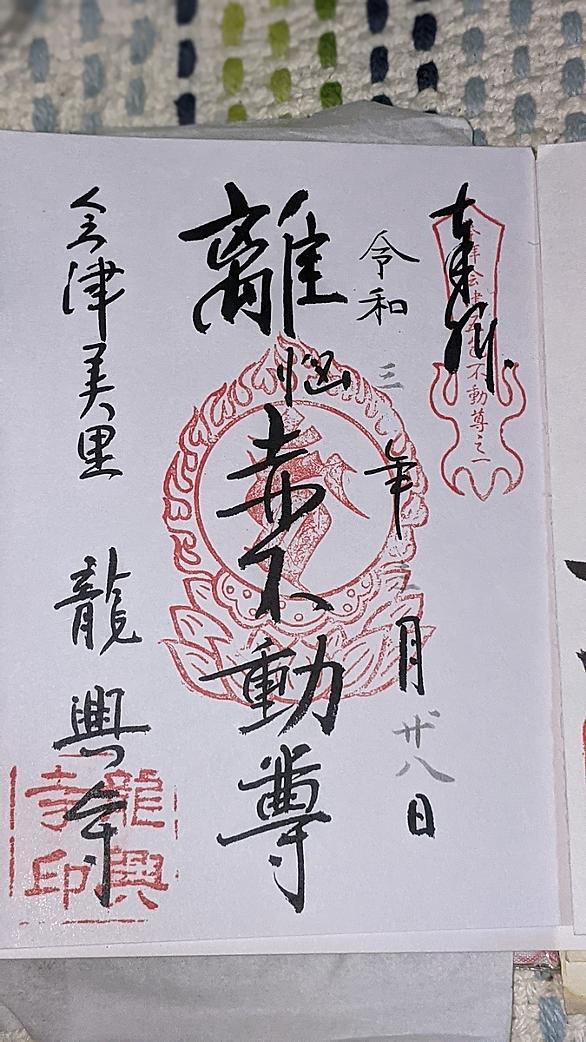 奉拝
会津五色不動尊之一
令和三年三月廿八日
離悩赤不動尊
会津美里 龍興寺
龍興
寺印